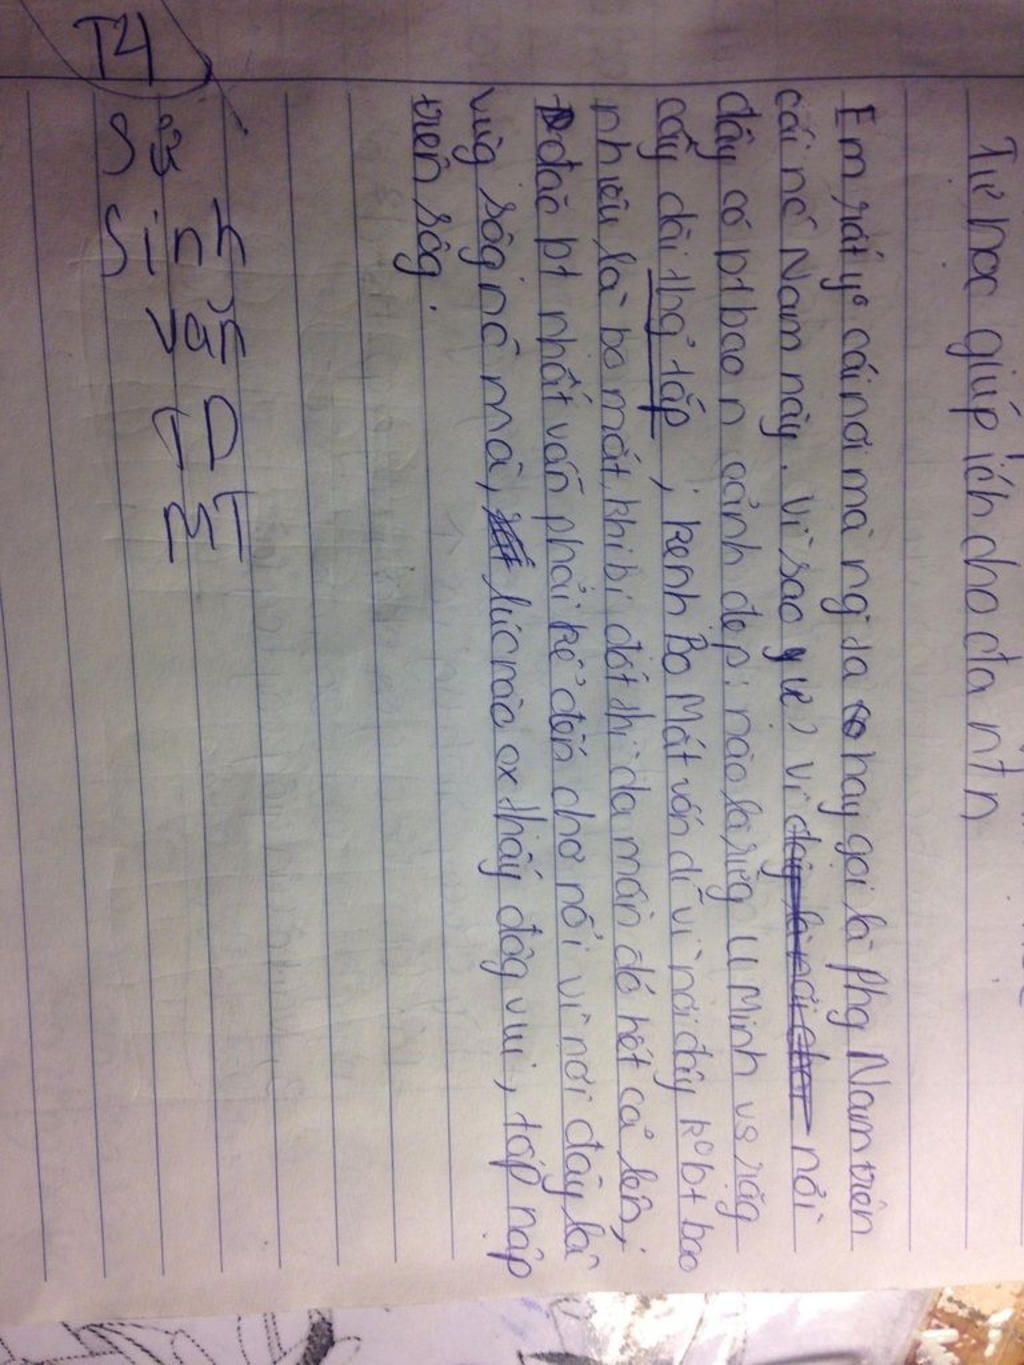 Tự học giúp ích cho đa
Em rất yº cái nơi mà ng ta hay gọi là Phg Nam trên
cái nc Nam này. Vì sao ư? Vì đây là nơi nơi
đây có pt bao n cảnh đẹp: nào là rừg U Minh vs rặg
cây dài thg tắp; kenh Bo Mát vốn dĩ vì nơi đây kº bt bao
nhiêu là bo mát, khi bị đốt thì da mẩn đỏ hết cả lên;
đặc pt nhất vẫn phải kể đến chơ nổi vì nơi đây là
vùg sôg nc mà, lúc nào cx thấy đôg vui, tấp nập
trên sôg.
T4
Sử
Sinh
Văn
TD
MT